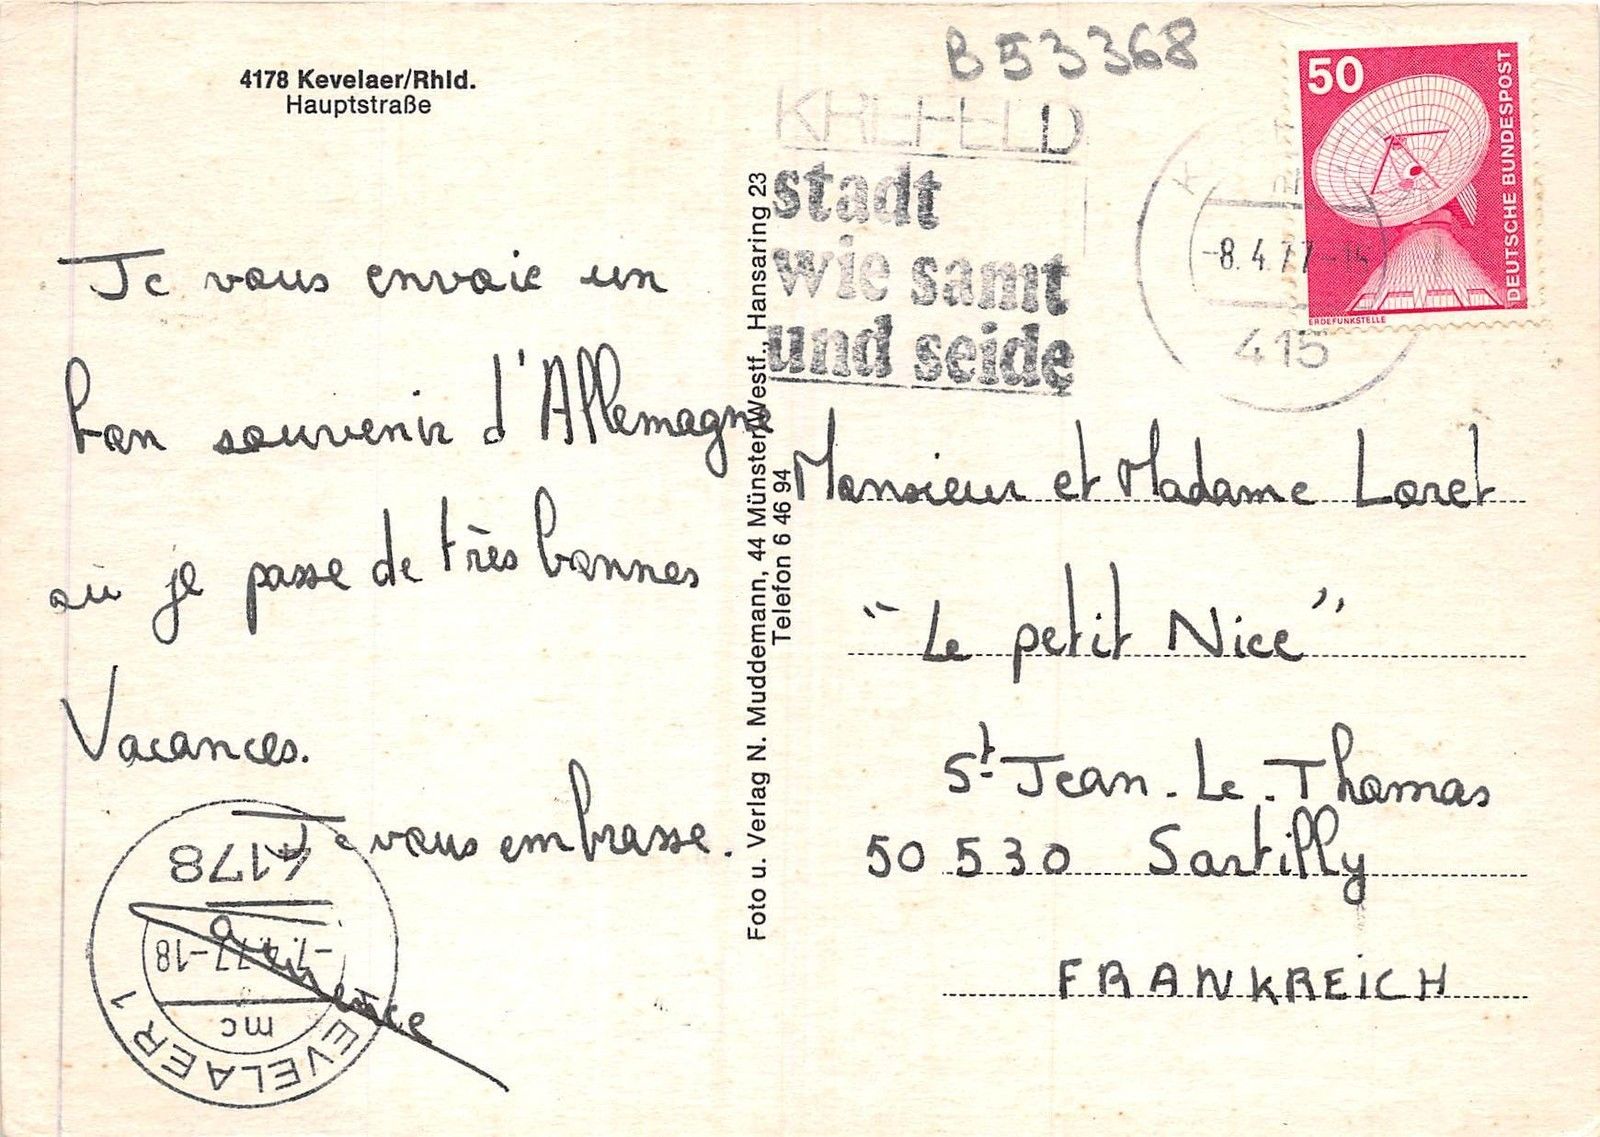 B 53368
4178 Kevelaer/Rhld.
Hauptstraße
Je vous envoie un
bon souvenir d'Allemagne
où je passe de très bonnes
Vacances.
Je vous embrasse.
Foto u. Verlag N. Muddemann, 44 Münster/Westf., Hansaring 23
Telefon 6 46 94
KREFELD
stadt
wie samt
und seide
-8.4.77-14
415
50
DEUTSCHE BUNDESPOST
ERDEFUNKSTELLE
Monsieur et Madame Loret
"Le petit Nice"
St Jean-Le-Thomas
50 530 Sartilly
FRANKREICH
4178
-7.4.77-18
mc
KEVELAER 1